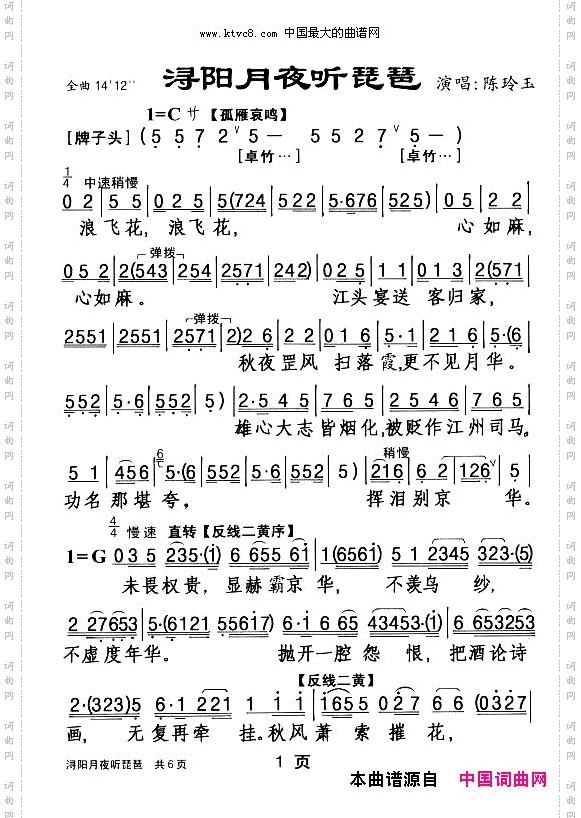 www.ktvc8.com 中国最大的曲谱网
全曲14'12'' 浔阳月夜听琵琶 演唱:陈玲玉
1=C サ 【孤雁哀鸣】
[牌子头] ( 5 5 7 2 ∨ 5 — 5 5 2 7 ∨ 5 — )
[卓竹…] [卓竹…]
1/4 中速稍慢
0 2 | 5 5 | 0 2 5 | 5(724 | 5222 | 5·676 | 525) | 0 5 | 2 2 |
浪飞花, 浪飞花, 心如麻,
弹拨
0 5 2 | 2(543 | 2254 | 2571 | 242) | 0 2 5 | 1 1 | 0 1 2 | 2(571 |
心如麻。 江头宴送 客归家,
弹拨
2551 | 2551 | 2571 | 2)2 6 | 2 2 | 0 1 6 | 5·1 | 2 1 6 | 5·(6 |
秋夜罡风 扫落霞,更不见月华。
552 | 5·6 | 552 | 5) | 2·5 4 5 | 7 6 5 | 2·5 4 5 | 1 7 1 |
雄心大志皆烟化,被贬作江州司马。
稍慢
5 1 | 4 5 6 | 5·(6 | 552 | 552 | 5) | 216 | 6 2 | 126 ∨ | 5 |
功名那堪夸, 挥泪别京 华。
4/4 慢速 直转【反线二黄序】
1=G 0 3 5 235·(1) 6 655 61 | 1(6561) 5 1 2345 323·(5)
未畏权贵, 显赫霸京华, 不羡乌 纱,
2 27653 | 5·(6121 55617) 6·1 6 65 43453·(1) | 6 653253
不虚度年华。 抛开一腔怨 恨, 把酒论诗
【反线二黄】
2·(323)5 6·1 221 1 1 1 | 2 2·3 2 7 6 5 6 (0327
画, 无复再牵 挂。秋风萧 索摧花,
浔阳月夜听琵琶 共6页 1 页
本曲谱源自 中国词曲网